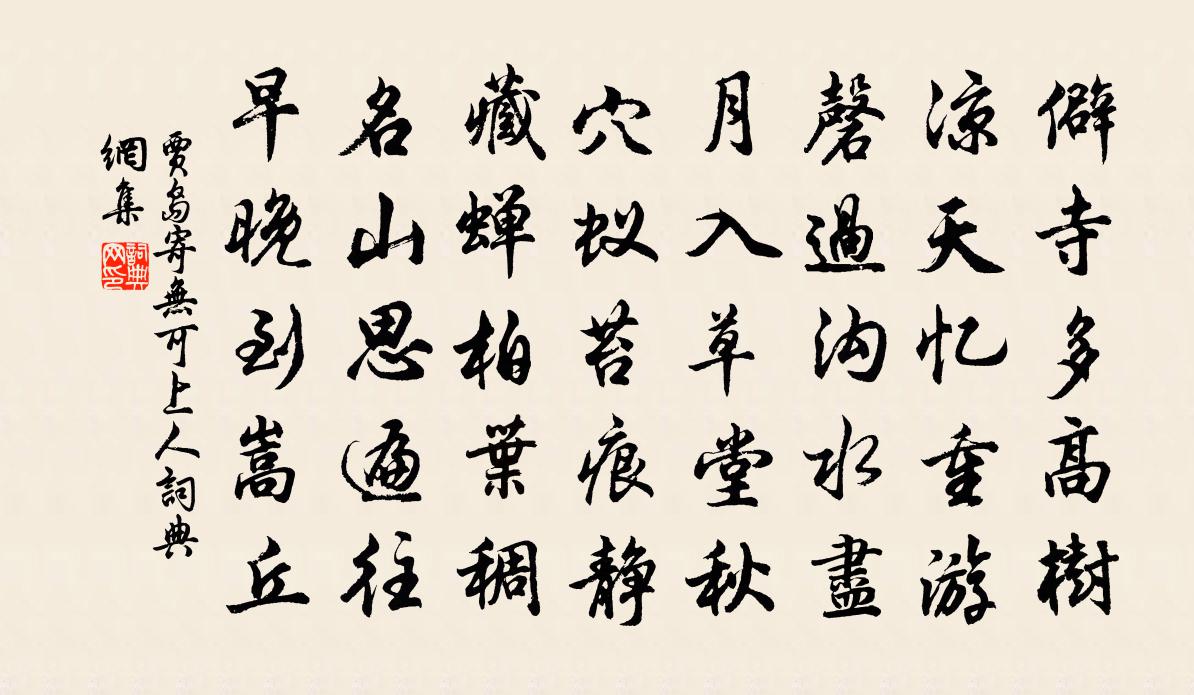 僻寺多高樹
涼天忆重游
磬過沟水盡
月入草堂秋
穴蚁苔痕静
藏蝉柏葉稠
名山思遍往
早晚到嵩丘
賈島寄無可上人詞典
網集
詞典
网印